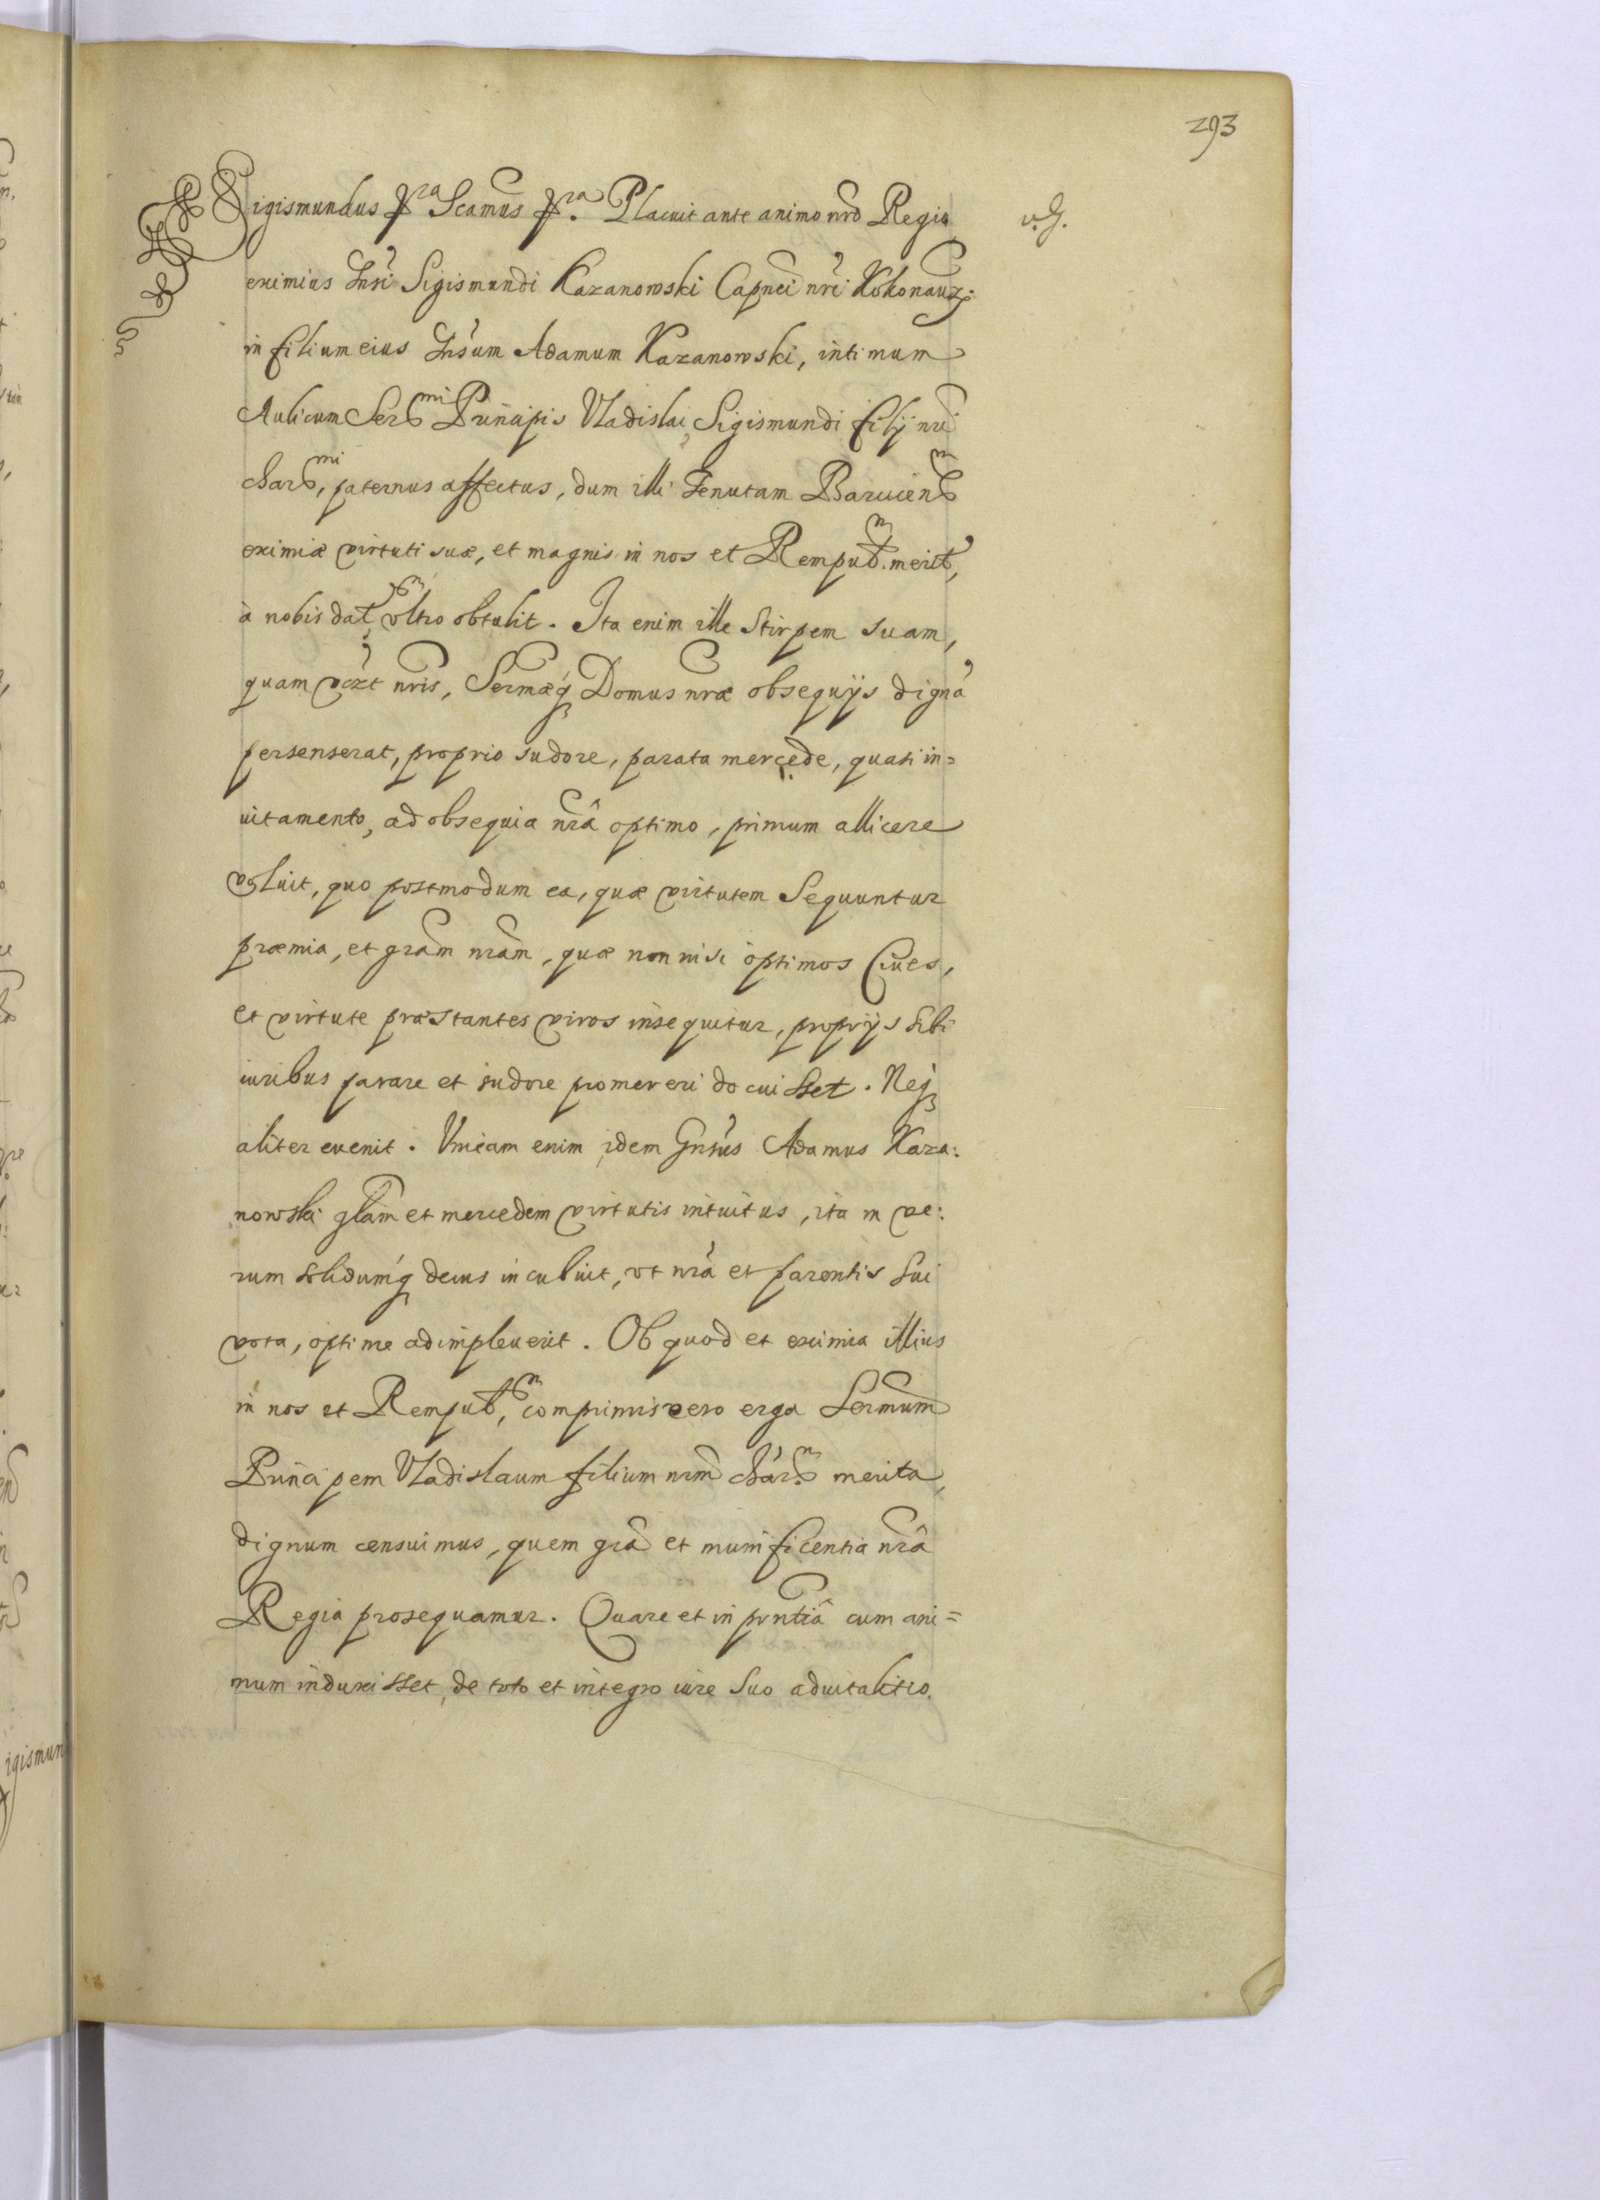 293
Sigismundus &ra Scamus &ra. Placuit ante animo nrō Regio v. J.
eximius Gnsi Sigismundi Kazanowski Capnei nri Kokonauz:
in filium eius Gnsum Adamum Kazanowski, intimum
Aulicum Sermi Principis Vladislai Sigismundi filij nri
charmi, paternus affectus, dum illi Tenutam Barcicensm
eximiæ virtuti suæ, et magnis in nos et Rempubm. merit,
à nobis datm vltro obtulit. Ita enim ille stirpem suam,
quam vezt nris, Sermæq Domus nræ obsequijs dignā
persenserat, proprio sudore, parata mercede, quasi in=
uitamento, ad obsequia nrā optimo, primum allicere
voluit, quo postmodum ea, quæ virtutem sequuntur
præmia, et gram nram, quæ non nisi optimos Ciues,
et virtute præstantes viros insequitur, proprijs sibi
iuribus parare et sudore promereri docuisset. Neq
aliter euenit. Vnicam enim idem Gnsus Adamus Kaza:
nowski glam et mercedem virtutis intuitus, ita in ve:
rum solidumq decus incubuit, vt nrā et parentis sui
vota, optime adimpleuerit. Ob quod et eximia illius
in nos et Rempubm, comprimis vero erga Sermum
Principem Vladislaum filium nrm charm merita,
dignum censuimus, quem grā et munificentia nrā
Regia prosequamur. Quare et in pntiâ cum ani=
mum induxisset, de toto et integro iure suo aduitalitio